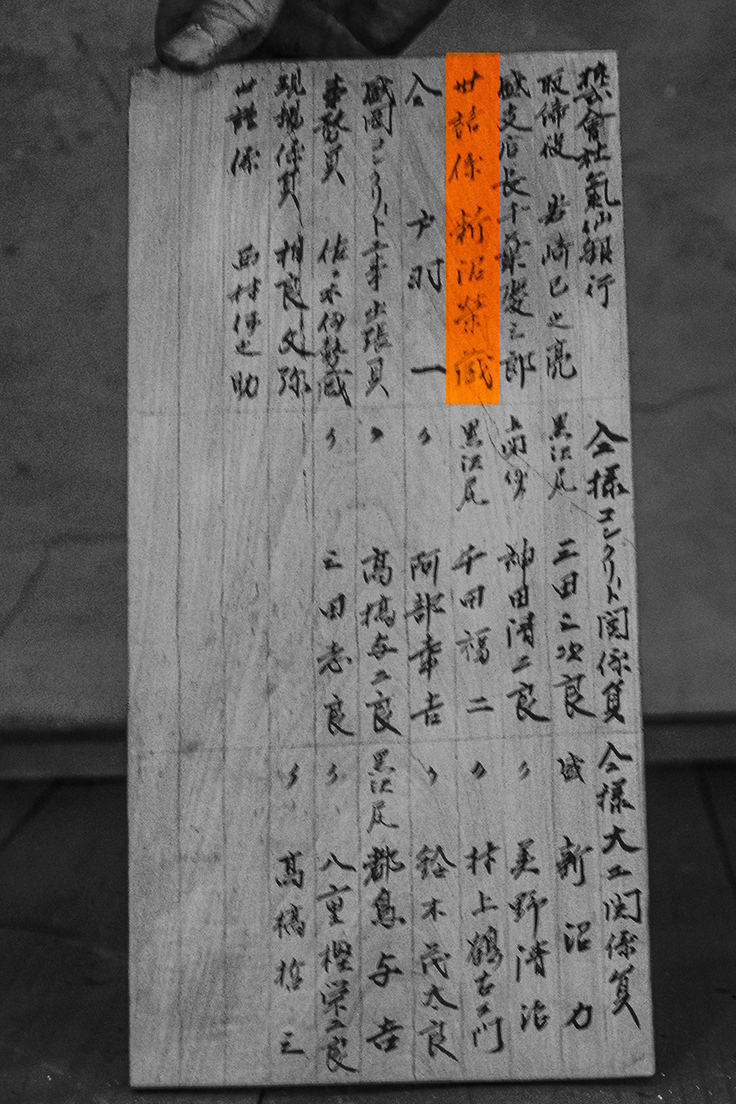 株式會社氣仙銀行
取締役 岩﨑巳之亮
盛支店長千葉慶三郎
世話係 新沼榮蔵
仝 戸羽 一
盛岡コンクリート工事出張員
事務員 佐々木伊勢蔵
現場係員 相良文弥
世話係 西村伊之助
仝様コンクリート関係員
黒沢尻 三田三次良
上閉伊 神田清二良
黒沢尻 千田福二
〃 阿部幸吉
〃 高橋与二良
〃 三田志良
仝様大工関係員
盛 新沼力
〃 美野清治
〃 村上鶴右エ門
〃 鈴木茂太良
黒沢尻 都鳥与吉
〃 八重樫栄二良
〃 高橋哲三